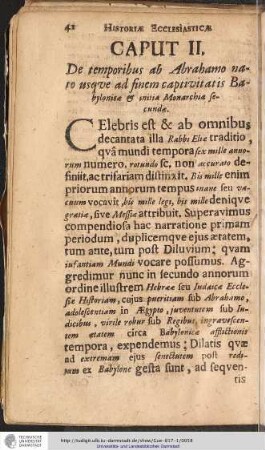 42 HISTORIÆ ECCLESIASTICÆ
CAPUT II.
De temporibus ab Abrahamo na-
to usqve ad finem captivitatis Ba-
bylonicæ & initia Monarchiæ se-
cundæ.
CElebris est & ab omnibus
decantata illa Rabbi Eliæ traditio,
qvâ mundi tempora sex mille anno-
rum numero, rotundo sc. non accurato de-
finiit, ac trifariam distinxit. Bis mille enim
priorum annorum tempus inane seu va-
cuum vocavit, bis mille legi, bis mille deniqve
gratiæ, sive Messiæ attribuit. Superavimus
compendiosa hac narratione primam
periodum, duplicemqve ejus ætatem,
tum ante, tum post Diluvium; qvam
infantiam Mundi vocare possumus. Ag-
gredimur nunc in secundo annorum
ordine illustrem Hebrææ seu Judaicæ Eccle-
siæ Historiam, cujus pueritiam sub Abrahamo,
adolescentiam in Ægypto, juventutem sub Ju-
dicibus, virile robur sub Regibus, ingravescen-
tem ætatem circa Babylonicæ afflictionis
tempora, expendemus; Dilatis qvæ
ad extremam ejus senectutem post redi-
tum ex Babylone gesta sunt, ad seqven-
tis